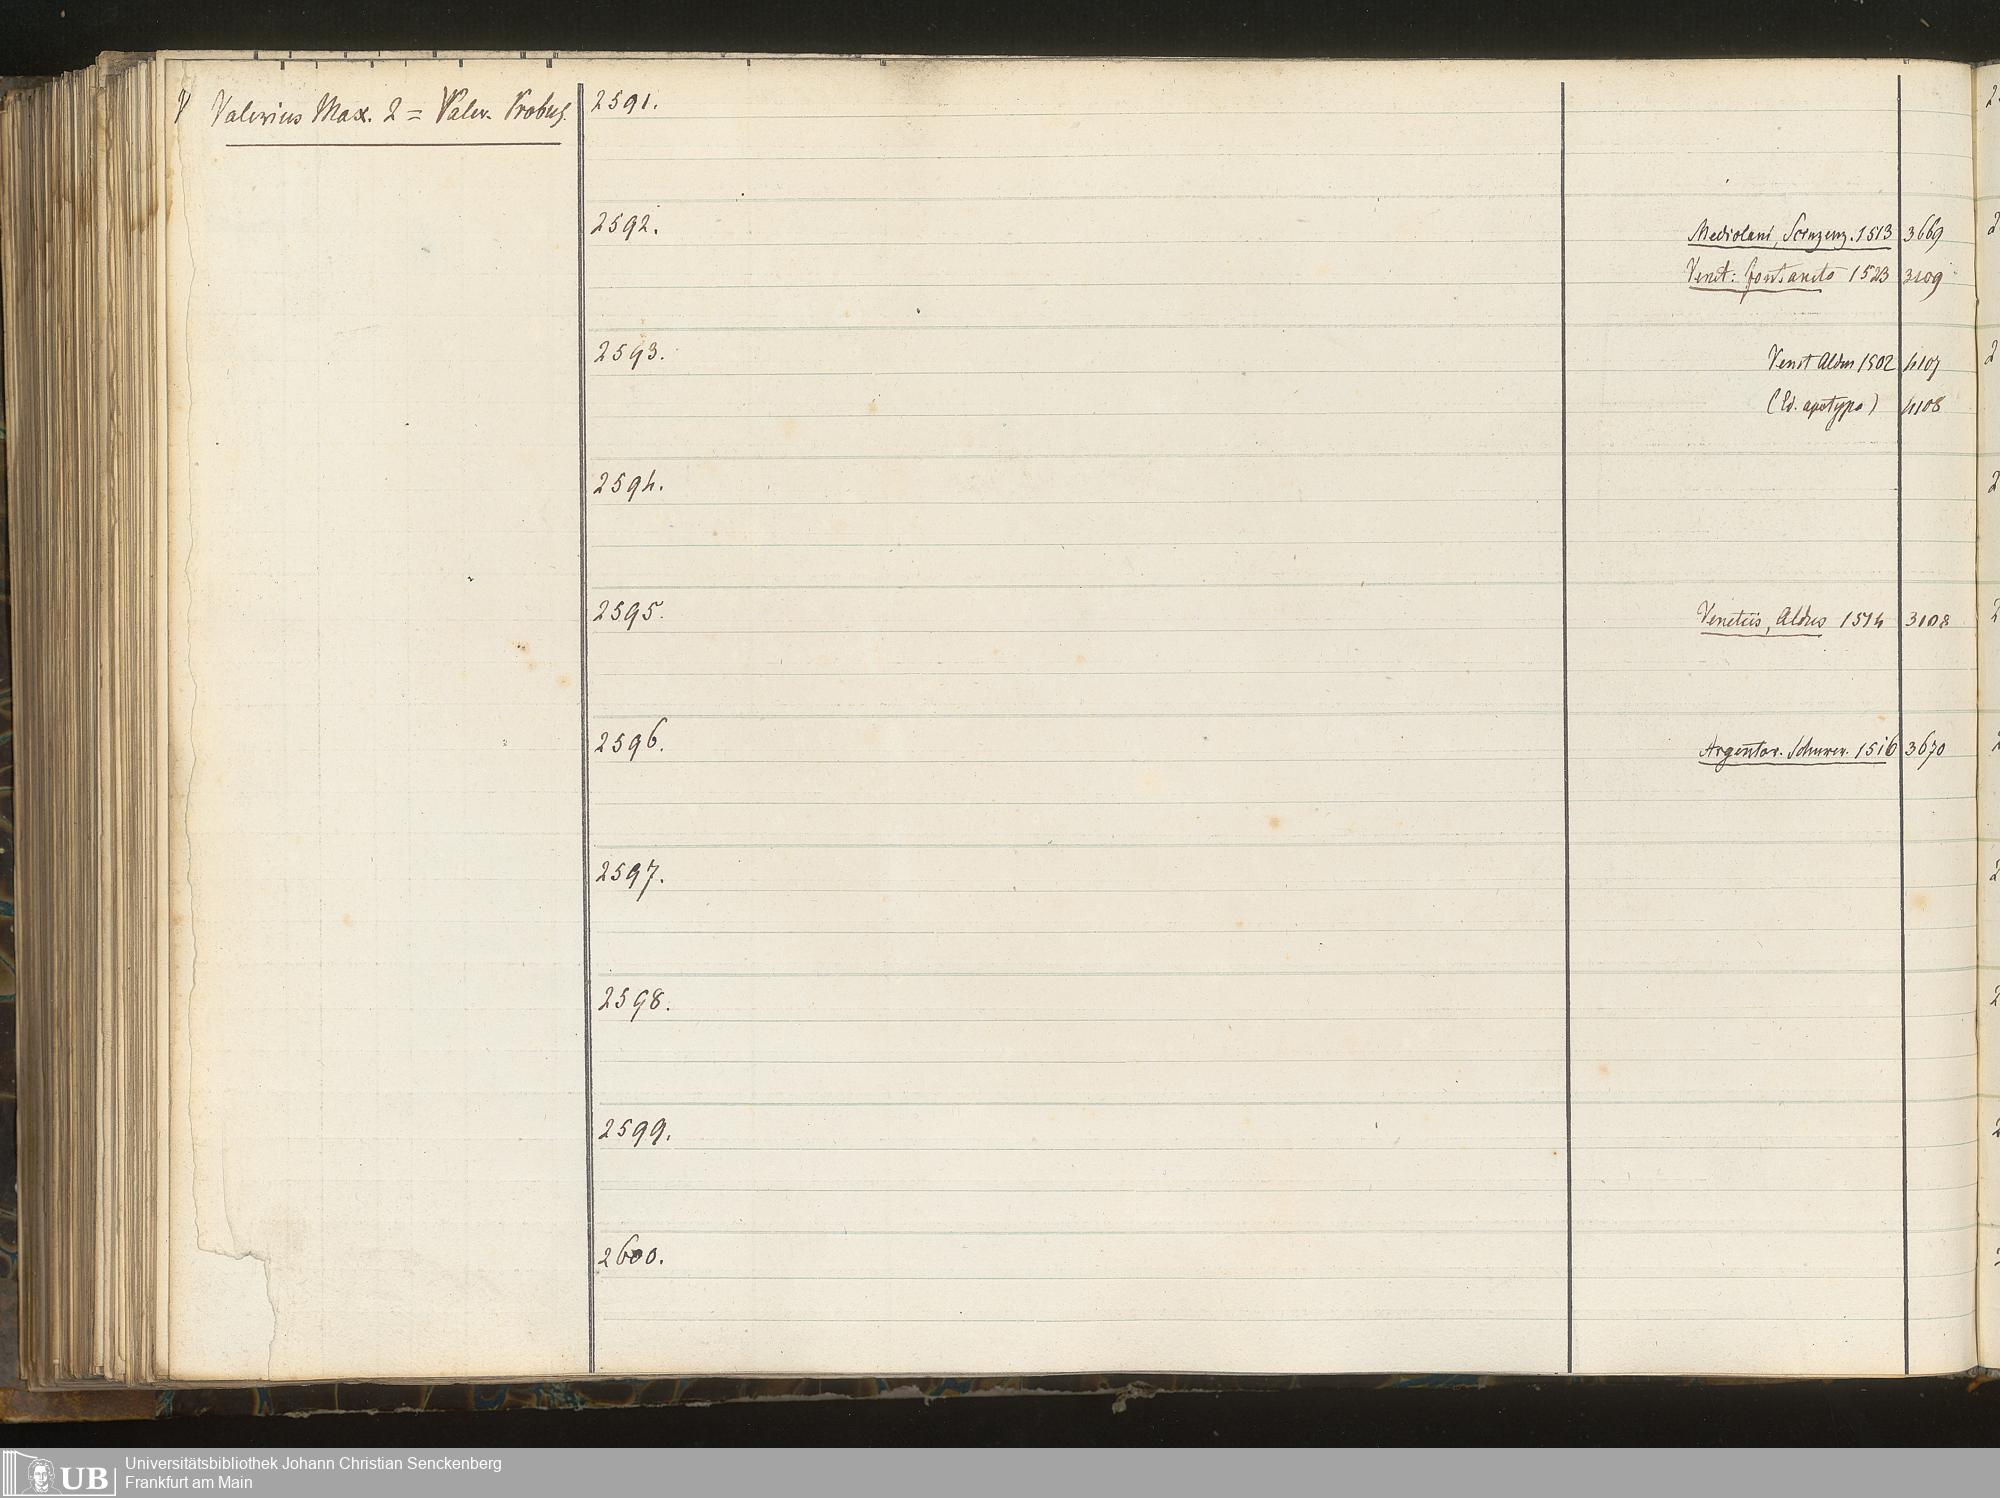 V Valerius Max. 2 = Valer. Probus.
2591.
2592.
Mediolani, Scinzenz. 1513 3669
Venet: fontaneto 1523 3109
2593.
Venet Aldus 1502 4107
(Ed. apotypa) 4108
2594.
2595.
Venetiis, Aldus 1514 3108
2596.
Argentor. Schurer. 1516 3670
2597.
2598.
2599.
2600.
UB
Universitätsbibliothek Johann Christian Senckenberg
Frankfurt am Main